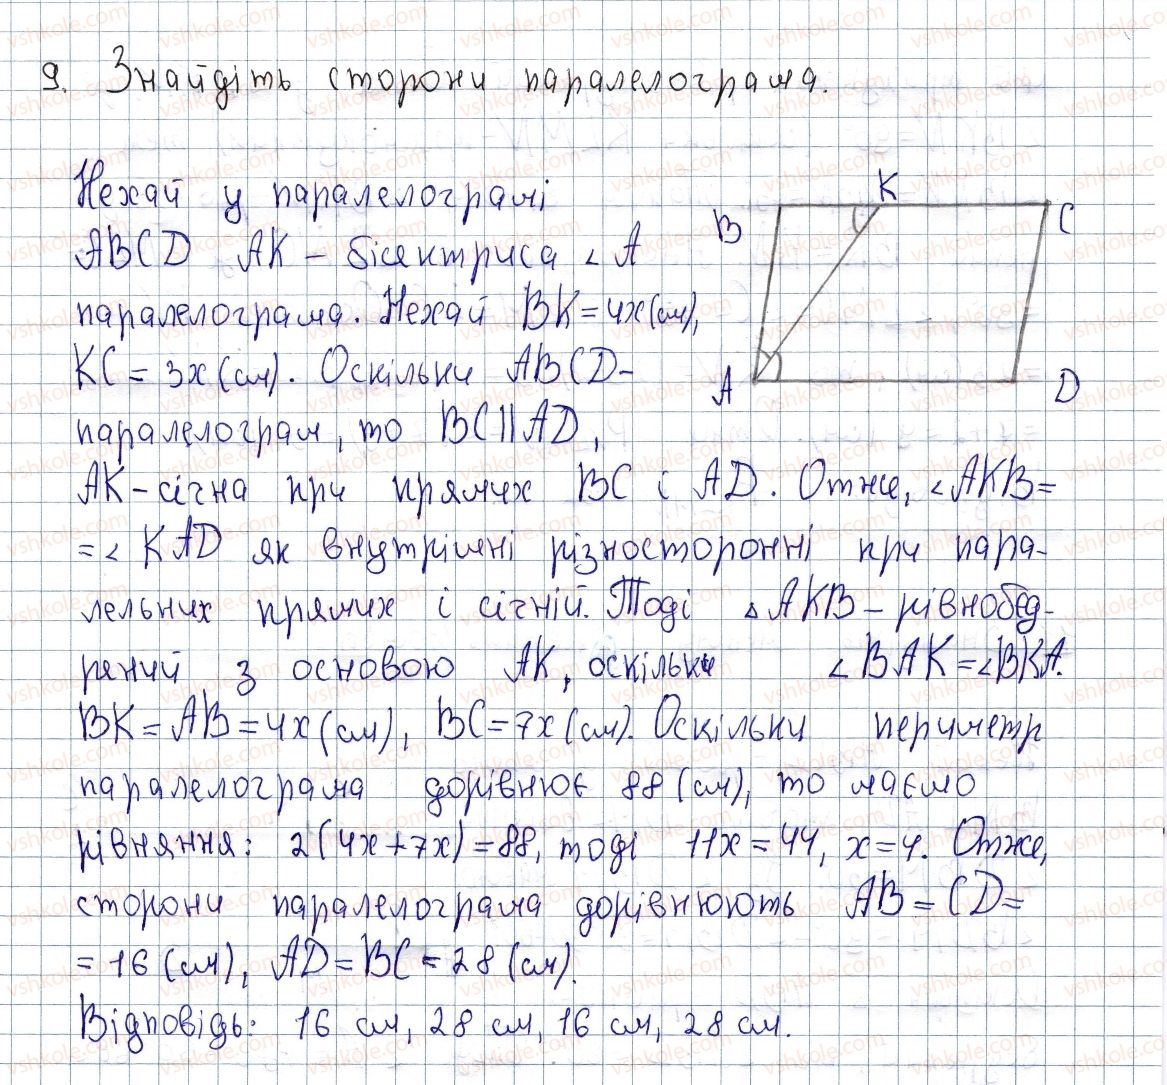 9. Знайдіть сторони паралелограма.
Нехай у паралелограмі
ABCD AK – бісектриса ∠A
паралелограма. Нехай BK = 4x (см),
KC = 3x (см). Оскільки ABCD –
паралелограм, то BC || AD,
AK – січна при прямих BC і AD. Отже, ∠AKB =
= ∠KAD як внутрішні різносторонні при пара-
лельних прямих і січній. Тоді △AKB – рівнобед-
рений з основою AK, оскільки ∠BAK = ∠BKA.
BK = AB = 4x (см), BC = 7x (см). Оскільки периметр
паралелограма дорівнює 88 (см), то маємо
рівняння: 2(4x + 7x) = 88, тоді 11x = 44, x = 4. Отже,
сторони паралелограма дорівнюють AB = CD =
= 16 (см), AD = BC = 28 (см).
Відповідь: 16 см, 28 см, 16 см, 28 см.
B
K
C
A
D
vshkole.com